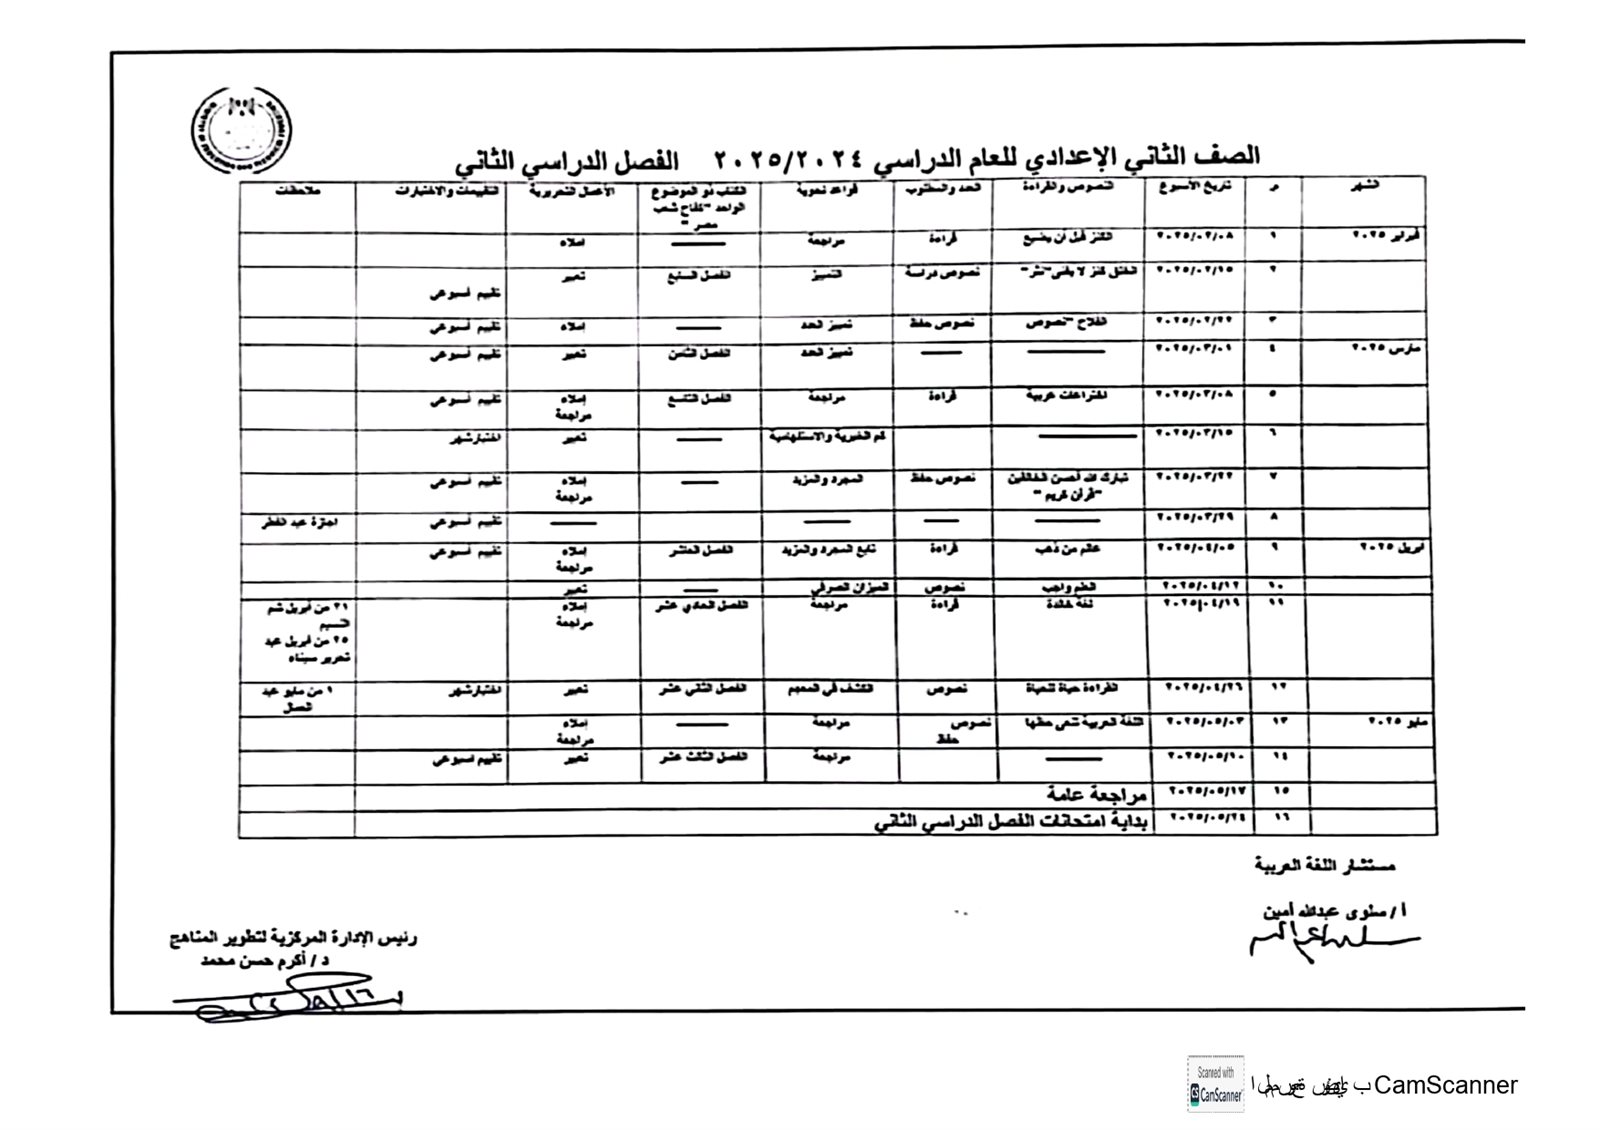 الصف الثاني الإعدادي للعام الدراسي ٢٠٢٥/٢٠٢٤ الفصل الدراسي الثاني
الشهر م تاريخ الأسبوع النصوص والقراءة العدد والمطلوب قواعد نحوية الكتاب ذو الموضوع الواحد "كفاح شعب مصر" الأعمال التحريرية التقييمات والاختبارات ملاحظات
فبراير ٢٠٢٥ ١ ٢٠٢٥/٠٢/٠٨ الكنز قبل أن يضيع قراءة مراجعة ــــ إملاء
٢ ٢٠٢٥/٠٢/١٥ كنز لا يفنى "نثر" نصوص دراسة التمييز الفصل السابع تعبير تقييم أسبوعي
٣ ٢٠٢٥/٠٢/٢٢ الفلاح "نصوص نصوص حفظ تمييز العدد ــــ إملاء تقييم أسبوعي
مارس ٢٠٢٥ ٤ ٢٠٢٥/٠٣/٠١ ــــ ــــ تمييز العدد الفصل الثامن تعبير تقييم أسبوعي
٥ ٢٠٢٥/٠٣/٠٨ اختراعات عربية قراءة مراجعة الفصل التاسع إملاء مراجعة تقييم أسبوعي
٦ ٢٠٢٥/٠٣/١٥ ــــ كم الخبرية والاستفهامية ــــ تعبير اختبار شهر
٧ ٢٠٢٥/٠٣/٢٢ تبارك الله أحسن الخالقين "قرآن كريم" نصوص حفظ المجرد والمزيد ــــ إملاء مراجعة تقييم أسبوعي
٨ ٢٠٢٥/٠٣/٢٩ ــــ ــــ ــــ ــــ تقييم أسبوعي اجازة عيد الفطر
ابريل ٢٠٢٥ ٩ ٢٠٢٥/٠٤/٠٥ عالم من ذهب قراءة تابع المجرد والمزيد الفصل العاشر إملاء مراجعة تقييم أسبوعي
١٠ ٢٠٢٥/٠٤/١٢ العلم واجب نصوص الميزان الصرفي ــــ تعبير
١١ ٢٠٢٥/٠٤/١٩ لغة خالدة قراءة مراجعة الفصل الحادي عشر إملاء مراجعة ٢١ من أبريل شم النسيم ٢٥ من أبريل عيد تحرير سيناء
١٢ ٢٠٢٥/٠٤/٢٦ القراءة حياة للحياة نصوص الكشف في المعجم الفصل الثاني عشر تعبير اختبار شهر ١ من مايو عيد العمال
مايو ٢٠٢٥ ١٣ ٢٠٢٥/٠٥/٠٣ اللغة العربية تنعى حظها نصوص حفظ مراجعة ــــ إملاء مراجعة
١٤ ٢٠٢٥/٠٥/١٠ ــــ مراجعة الفصل الثالث عشر تعبير تقييم أسبوعي
١٥ ٢٠٢٥/٠٥/١٧ مراجعة عامة
١٦ ٢٠٢٥/٠٥/٢٤ بداية امتحانات الفصل الدراسي الثاني
مستشار اللغة العربية
أ / سلوى عبدالله أمين
رئيس الإدارة المركزية لتطوير المناهج
د / أكرم حسن محمد
Scanned with
CamScanner
الممسوحة ضوئيا بـ CamScanner